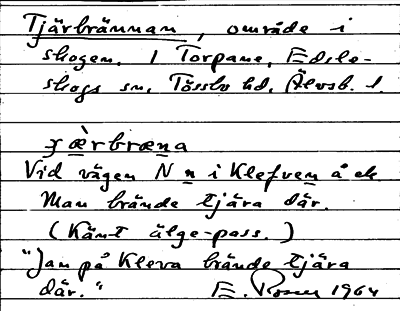 Tjärbrännan, område i
skogen. 1 Torpane, Edsle-
skogs sn. Tössbo hd, Älvsb. l.
ɟæ̀rbræna
Vid vägen N n i Klefven å ek
Man brände tjära där.
(Känt älge-pass.)
"Jan på Kleva brände tjära
där." E. Rosen 1964